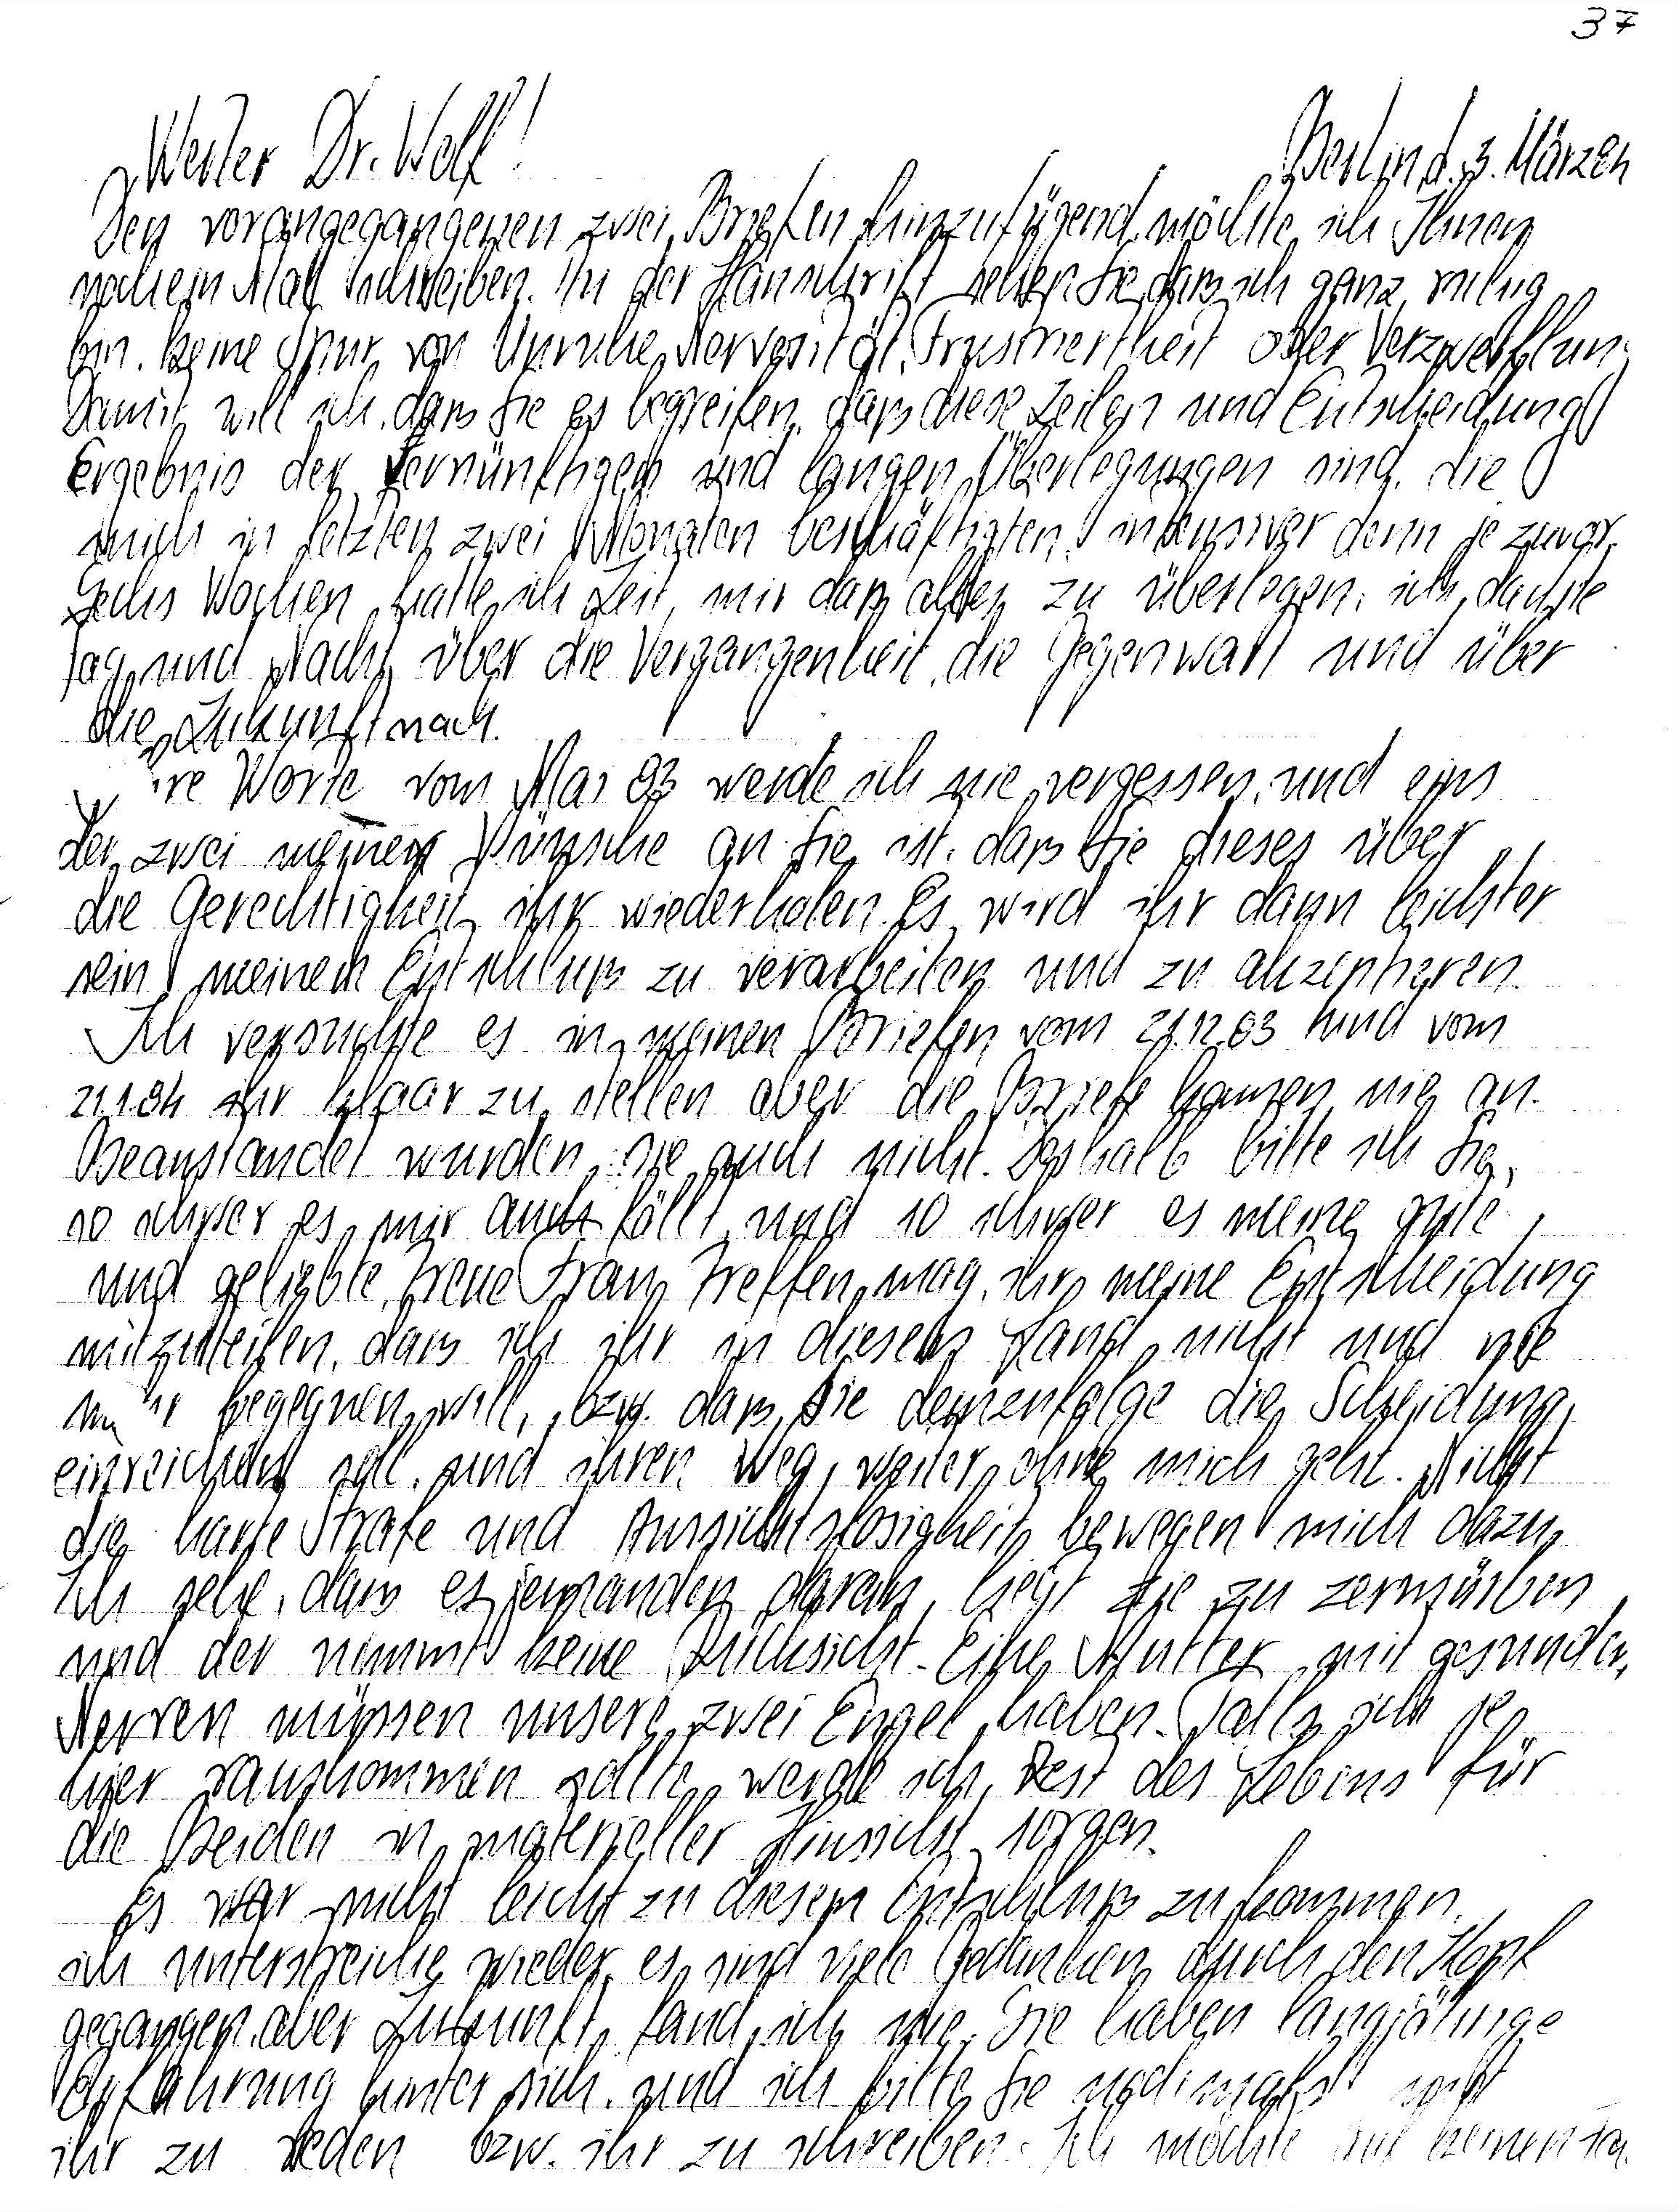 37
Werter Dr. Wolf!
Berlin d. 3. Märzen
Den vorangegangenen zwei Briefen hinzufügend möchte ich Ihnen
noch ein Mal schreiben. In der Hanschrift sehen Sie, daß ich ganz ruhig
bin. Keine Spur von Unruhe, Nervosität, Frustriertheit oder Verzweiflun.
Damit will ich, daß Sie es begreifen, daß diese Zeilen und Entscheidung
Ergebnis der vernünftigen und langen Überlegungen sind, die
mich in letzten zwei Monaten beschäftigten, intensiver denn je zuvor.
Sechs Wochen hatte ich Zeit, mir daß alles zu überlegen, ich dachte
Tag und Nacht über die Vergangenheit, die Gegenwart und über
die Zukunft nach.
re Worte vom Mai 83 werde ich nie vergessen, und eins
der zwei meiner Wünsche an Sie ist, daß Sie dieses über
die Gerechtigkeit ihr wiederholen. Es wird ihr dann leichter
sein meinen Entschluß zu verarbeiten und zu akzeptieren.
Ich versuchte es in meinen Briefen vom 21.12.83 und vom
21.1.84 ihr klaar zu stellen aber die Briefe kamen nie an.
Beanstandet wurden sie auch nicht. Deshalb bitte ich Sie,
so schwer es mir auch fällt und so schwer es meine gute
und geliebte, treue Frau treffen mag, ihr meine Entscheidung
mitzuteilen, daß ich ihr in diesem Land nicht und nie
begegnen will, bzw. daß sie demzufolge die Scheidung
einreichen soll, und ihren Weg, weiter ohne mich geht. Nicht
die harte Strafe und Aussichtslosigkeit bewegen mich dazu.
Ich sehe, daß es jemanden daran liegt sie zu zermürben
und der nimmt keine Rücksicht. Eine Mutter mit gesunden
Nerven müssen unsere zwei Engel haben. Falls ich je
hier rauskommen sollte, werde ich Rest des Lebens für
die Beiden in materieller Hinsicht sorgen.
Es war nicht leicht zu diesem Entschluß zu kommen,
ich unterstreiche wieder, es sind viele Gedanken durch den Kopf
gegangen, aber Zukunft fand ich nie. Sie haben langjährige
Erfahrung hinter sich, und ich bitte Sie nochmals mit
ihr zu reden bzw. ihr zu schreiben. Ich möchte auf keinen